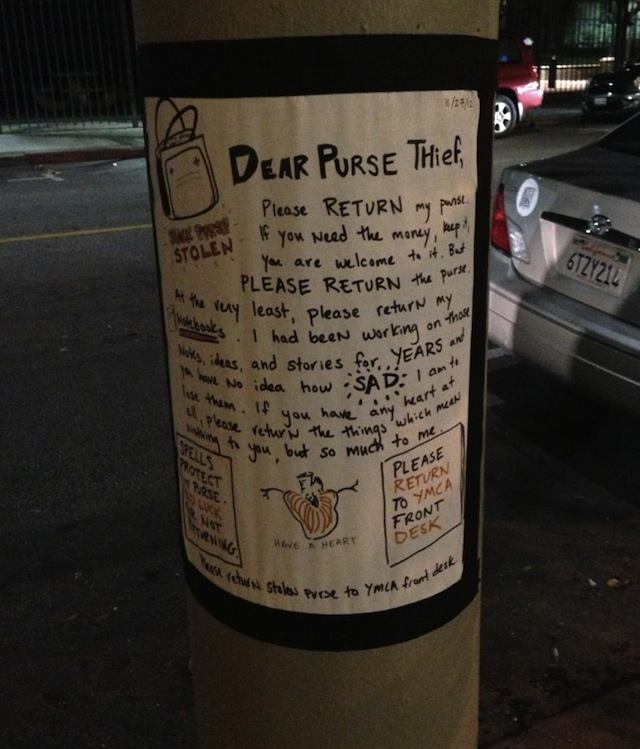 11/27/12
DEAR PURSE THIEF,
Please RETURN my purse.
If you need the money, keep it,
you are welcome to it. But
PLEASE RETURN the purse.
STOLEN
At the very least, please return my
Notebooks. I had been working on those
Notes, ideas, and stories for YEARS and
you have no idea how SAD I am to
lose them. If you have any heart at
all, please return the things which mean
nothing to you, but so much to me.
SPELLS
PROTECT
MY PURSE.
BAD LUCK
FOR NOT
RETURNING.
HAVE A HEART
PLEASE
RETURN
TO YMCA
FRONT
DESK
Please return stolen purse to YMCA front desk.
6TZY214